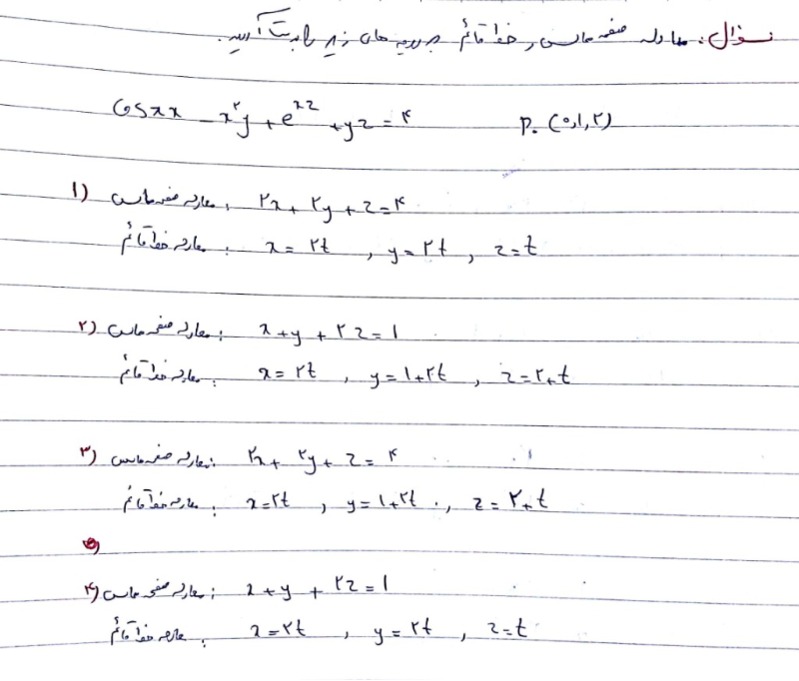 سؤال: معادله صفحه مماس و خط قائم بر رویه های زیر را بدست آورید.
cos πx - x²y + e^xz + yz = ۴    P. (۰,۱,۲)
۱) معادله صفحه مماس: ۲x + ۲y + z = ۴
معادله خط قائم: x = ۲t , y = ۲t , z = t
۲) معادله صفحه مماس: x + y + ۲z = ۱
معادله خط قائم: x = ۲t , y = ۱+۲t , z = ۲+t
۳) معادله صفحه مماس: ۲x + ۲y + z = ۴
معادله خط قائم: x = ۲t , y = ۱+۲t , z = ۲+t
۴) معادله صفحه مماس: x + y + ۲z = ۱
معادله خط قائم: x = ۲t , y = ۲t , z = t